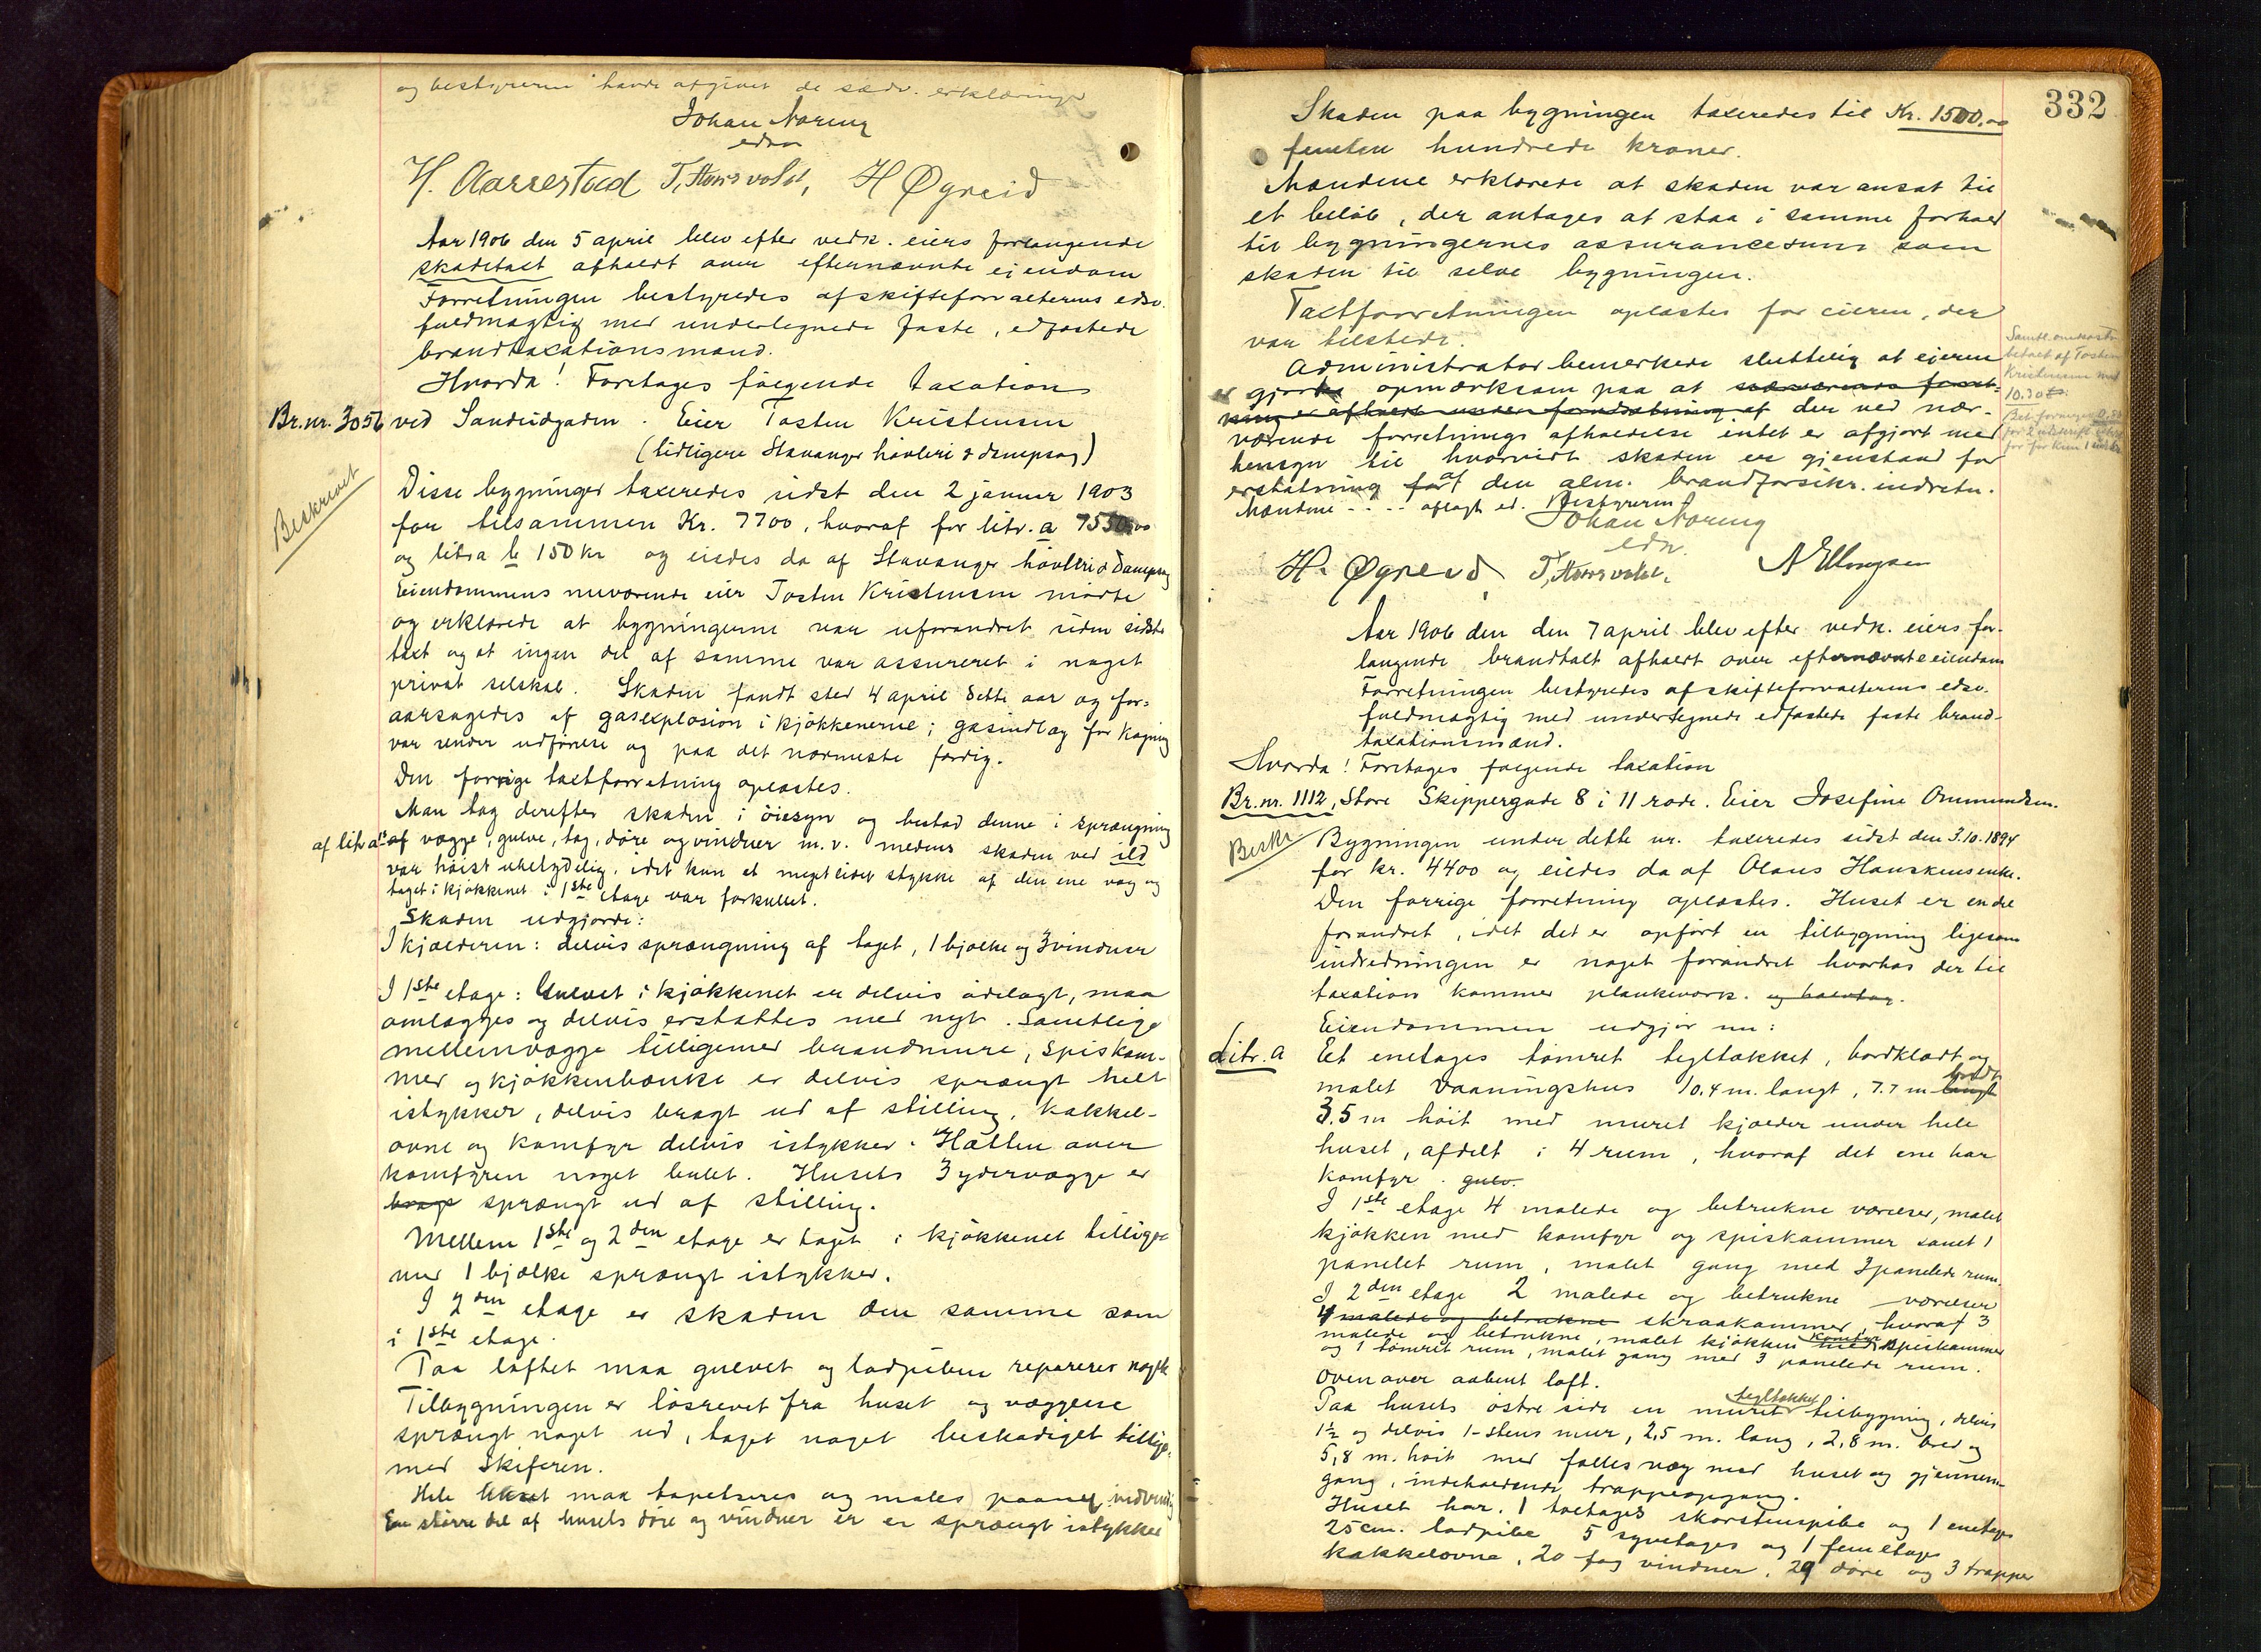 og bestyreren havde afgivet de sædv. erklæringer
Johan Næring
edsv
H. Aarrestad T, Aarsvold, H Øgreid
Aar 1906 den 5 april blev efter vedk. eiers forlangende
skadetaxt afholdt over efternævnte eiendom
Forretningen bestyredes af skifteforvalterens edsv.
fuldmægtig med undertegnede faste, edfæstede
brandtaxationsmænd.
Hvorda! Foretages følgende taxation
Br.nr. 3056 ved Sandeidgaden. Eier Tosten Kristensen
(tidligere Stavanger høvleri & dampsag)
Beskrevet
Disse bygninger taxeredes sidst den 2 januar 1903
for tilsammen Kr. 7700, hvoraf for litr. a 7550,00
og litra b 150 kr og eiedes da af Stavanger høvleri & Dampsag
Eiendommens nuværende eier Tosten Kristensen mødte
og erklærede at bygningerne var uforandret siden sidste
taxt og at ingen del af samme var assureret i noget
privat selskab. Skaden fandt sted 4 april dette aar og for-
aarsagedes af gasexplosion i kjøkkenerne; gasindlæg for kogning
var under udførelse og paa det nærmeste færdig.
Den forrige taxtforretning oplæstes.
Man tog derefter skaden i øiesyn og bestod denne i sprængning
af litr a af vægge, gulve, tag, døre og vinduer m.v. medens skaden ved ild
var høist ubetydelig, idet kun et meget lidet stykke af den ene væg og
taget i kjøkkenet i 1ste etage var forkullet.
Skaden udgjorde:
I kjælderen: delvis sprængning af taget, 1 bjælke og 3 vinduer
I 1ste etage: Gulvet i kjøkkenet er delvis ødelagt, maa
omlægges og delvis erstattes med nyt. Samtlige
mellemvægge tilligemed brandmure, spiskam-
mer og kjøkkenbænke er delvis sprængt helt
istykker, delvis bragt ud af stilling. Kakkel-
ovne og komfyr delvis istykker. Hætten over
komfyren noget bulet. Husets 3 ydervægge er
bragt sprængt ud af stilling.
Mellem 1ste og 2den etage er taget i kjøkkenet tillige
med 1 bjælke sprængt istykker.
I 2den etage er skaden den samme som
i 1ste etage.
Paa loftet maa gulvet og lodpiben repareres noget
Tilbygningen er løsrevet fra huset og væggene
sprængt noget ud, taget noget beskadiget tillige-
med Skiferen.
Hele huset maa tapetseres og males paany indvendig
En større del af husets døre og vinduer er sprængt istykker
332
Skaden paa bygningen taxeredes til Kr. 1500.00
femten hundrede kroner.
Mændene erklærede at skaden var ansat til
et beløb, der antages at staa i samme forhold
til bygningernes assurancesum som
skaden til selve bygningen.
Taxtforretningen oplæstes for eieren, der
var tilstede.
Administrator bemerkede sluttelig at eieren
er gjort opmærksom paa at nærværende forret-
ning er afholdt under forudsætning af der ved nær-
værende forretnings afholdelse intet er afgjort med
hensyn til hvorvidt skaden er gjenstand for
erstatning af den alm. brandforsikr. indretn.
Mændene - - - - aflagt ed. Bestyreren
Samtl. omkostn.
betalt af Tosten
Kristensen med
10.30
Johan Næring
edsv.
H. Øgreid, T, Aarsvold, A Ellingsen
Aar 1906 den den 7 april blev efter vedk. eiers for-
langende brandtaxt afholdt over efternævnte eiendom
Forretningen bestyredes af skifteforvalterens edsv.
fuldmægtig med undertegnede edfæstede faste brand-
taxationsmænd.
Hvorda! Foretages følgende taxation
Br.nr. 1112, Store Skippergade 8 i 11 rode. Eier Josefine Ommundsen.
Beskr
Bygningen under dette nr. taxeredes sidst den 3.10.1894
for kr. 4400 og eiedes da af Olaus Hauskensenke.
Den forrige forretning oplæstes. Huset er en del
forandret, idet det er opført en tilbygning ligesom
indredningen er noget forandret hvorhos der til
taxation kommer plankeværk. og halvtag.
Eiendommen udgjør nu:
Litr. a Et enetages tømret tegltækket, bordklædt og
malet vaaningshus 10.4 m. langt, 7.7 m langt bredt
3.5 m høit med muret kjælder under hele
huset, afdelt i 4 rum, hvoraf det ene har
komfyr. gulv.
I 1ste etage 4 malede og betrukne værelser, malet
kjøkken med komfyr og spiskammer samt 1
panelet rum, malet gang med 3 panelede rum.
I 2den etage 2 malede og betrukne værelser
4 malede og betrukne skraakammer, hvoraf 3
malede og betrukne, malet kjøkken med komfyr spiskammer
og 1 tømret rum, malet gang med 3 panelede rum.
Ovenover aabent loft.
Paa husets østre side en muret tegltækket tilbygning, delvis
1½ og delvis 1-stens mur, 2,5 m. lang, 2,8 m. bred og
5,8 m. høit med fælles væg med huset og gjennem-
gang, indeholdende trappeopgang.
Huset har 1 toetages skorstenspibe og 1 enetages
25 cm. lodpibe 5 syvetages og 1 femetages
kakkelovne, 20 fag vinduer, 29 døre og 3 trapper